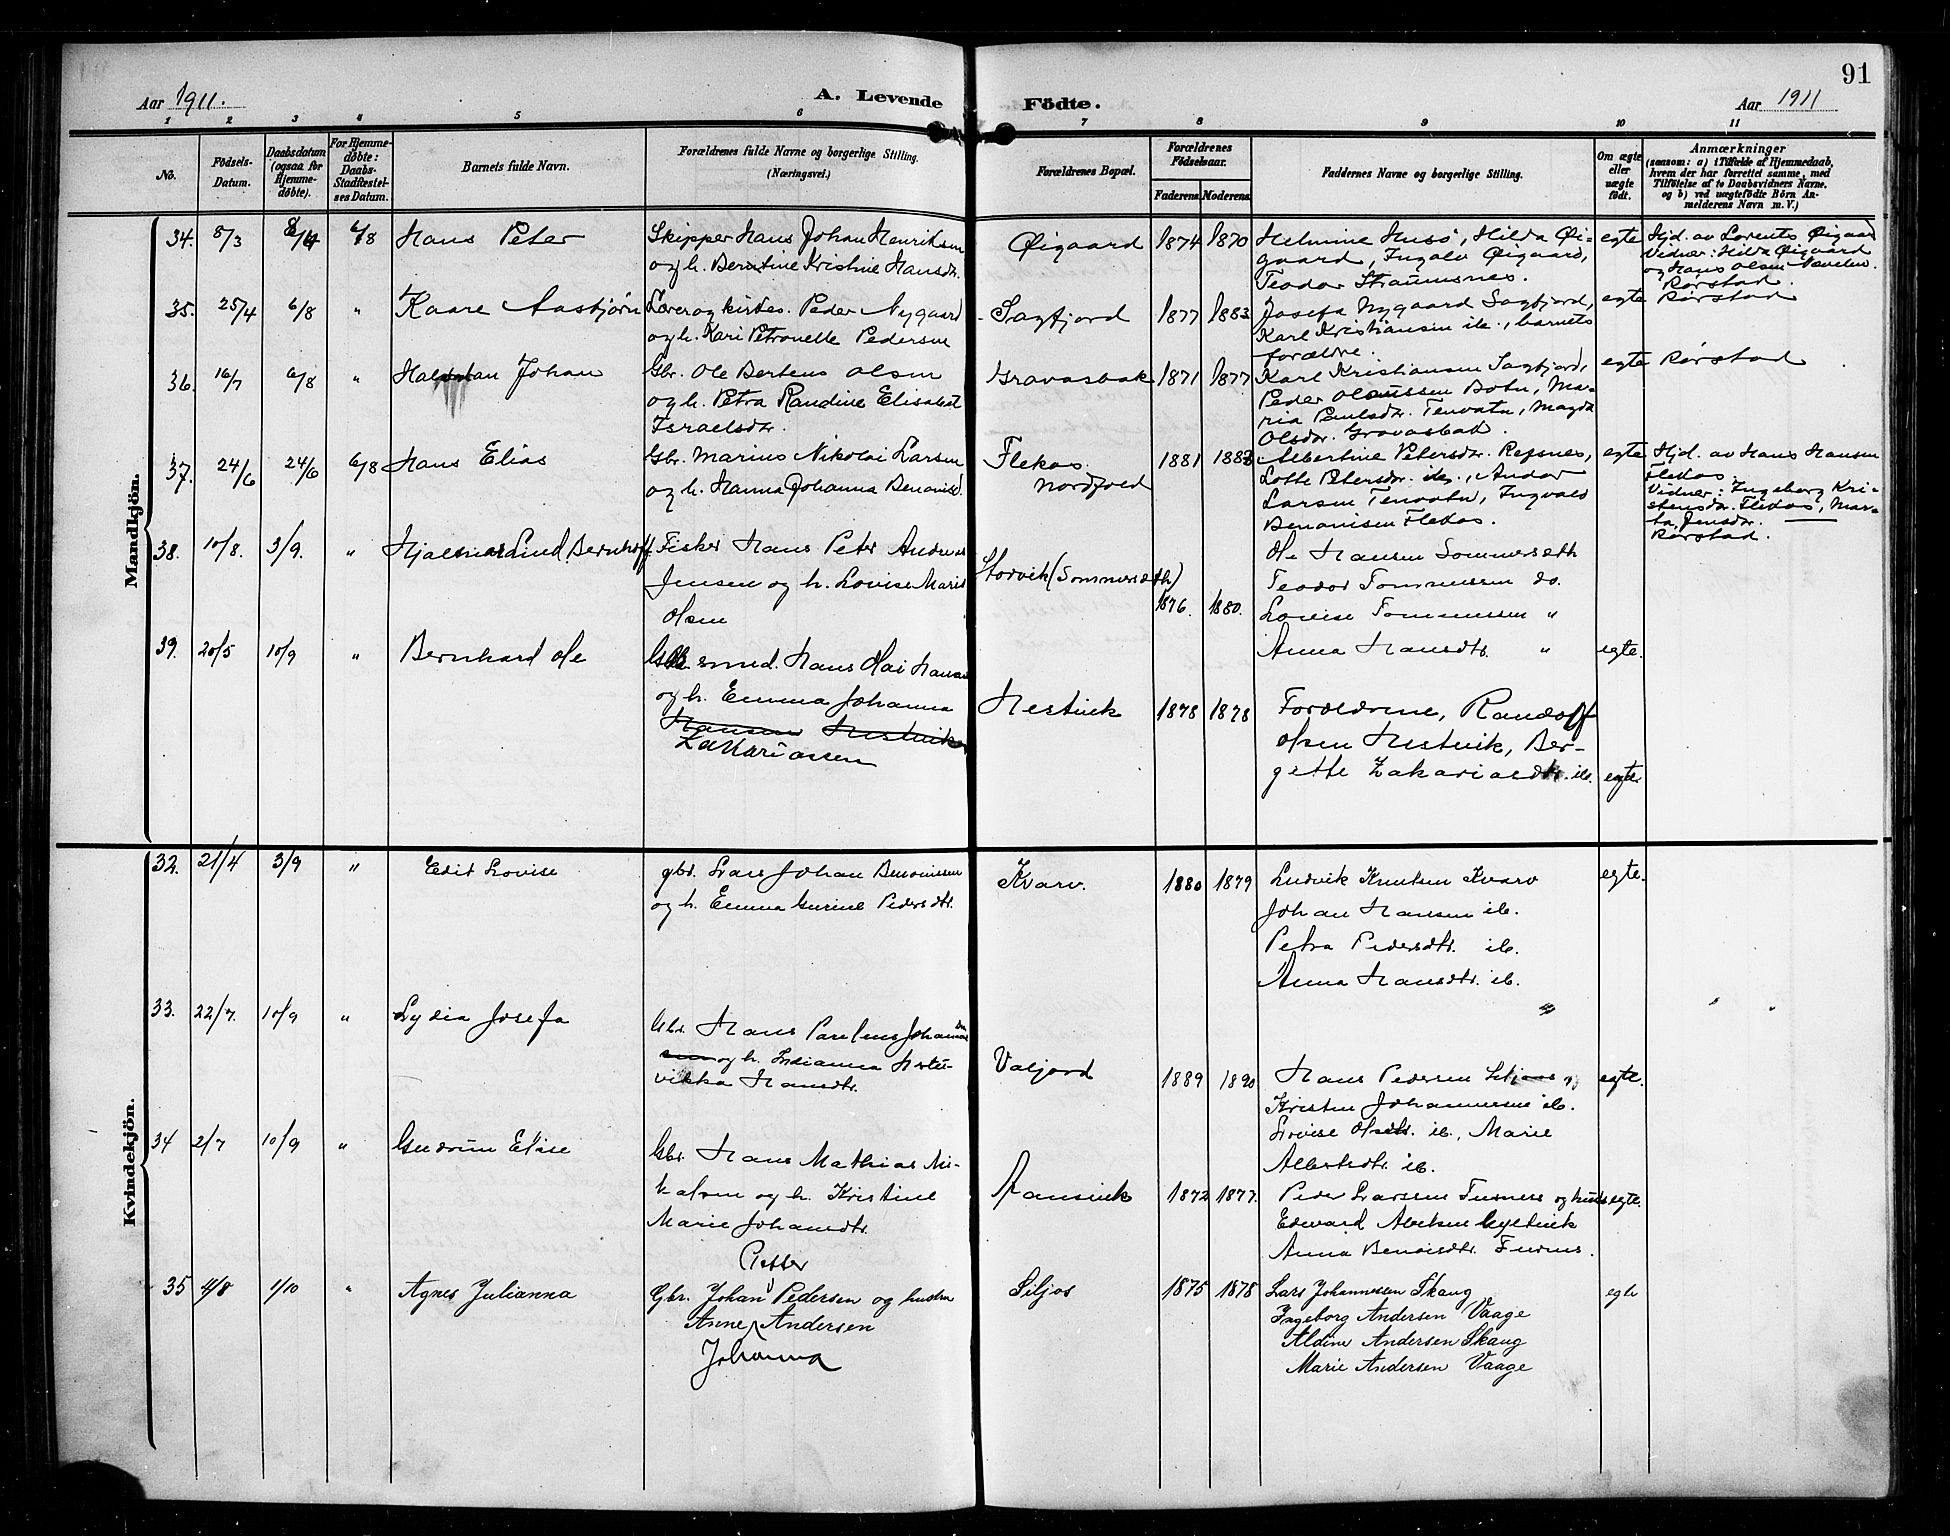 91
Aar 1911.
A. Levende Födte.
Aar 1911
1 2 3 4 5 6 7 8 9 10 11
No.
Födsels-Datum.
Daabsdatum (ogsaa for Hjemme-döbte).
For Hjemme-döbte: Daabs-Stadfæstel-ses Datum.
Barnets fulde Navn.
Forældrenes fulde Navne og borgerlige Stilling.
(Næringsvei.)
Forældrenes Bopæl.
Forældrenes Födselsaar.
Faderens Moderens
Faddernes Navne og borgerlige Stilling.
Om ægte eller uægte födt.
Anmærkninger
(saasom: a) i Tilfælde af Hjemmedaab,
hvem der har forrettet samme, med
Tilföielse af to Daabsvidners Navne,
og b) ved uægtefödte Börn An-
melderens Navn m. V.)
Mandkjön.
34. 8/3 8/4 6/8 Hans Peter
Skipper Hans Johan Henriksen
og h. Berntine Kristine Hansdr.
Øigaard 1874 1870
Helmine Husö, Hilda Øi-
gaard, Ingolv Øigaard,
Teodor Straumsnes.
egte
Hjd. av Lorents Øigaard
Vidner: Hilda Øigaard
og Hans Olsen
Rørstad.
35. 25/4 6/8 " Kaare Aasbjørn
Lærer og kirkes. Peder Nygaard
og h. Kari Petronelle Pedersen
Sagfjord 1877 1883
Josefa Nygaard Sagfjord,
Karl Kristiansen ib., barnets
forældre.
egte Rørstad
36. 16/7 6/8 " Halstan Johan
Gbr. Ole Bertens Olsen
og h. Petra Randine Elisabet
Israelsdr.
Gravasbak 1871 1877
Karl Kristiansen Sagfjord,
Peder Olaussen Botn, Ma-
ria Paulsdr. Tenvatn, Magda
Olsdr. Gravasbak.
egte Rørstad
37. 24/6 24/6 6/8 Hans Elias
Gbr. Marius Nikolai Larsen
og h. Hanna Johanna Benonisd.
Flekos
Nordfold
1881 1883
Albertine Petersdr. Repnes,
Lotte Petersdr. ib., Andor
Larsen Tenvatn, Ingvald
Benonisen Flekos.
egte
Hjd. av Hans Hansen
Flekos.
Vidner: Ingeborg Kri-
stensdr. Flekos, Mar-
ta Jensdr.
Rørstad.
38. 10/8. 3/9. " Hjalmar Lind Bernhoff
Fisker Hans Peter Andreas
Jensen og h. Lovise Marie
Olsen
Storvik (Sommerseth)
1876. 1880.
Ole Hansen Sommerseth
Teodor Tommessen do.
Lovise Tommessen "
Anna Hansdtr. "
egte.
39. 20/5 10/9 " Bernhard Ole
smed. Hans Olai Hansen
og h. Emma Johanna
Hansen Hestvik
Zakariassen
Hestvik 1878 1878
Forældrene, Randolf
Olsen Hestvik, Ber-
gette Zakariasdtr. ib.
egte
Kvindekjön.
32. 21/4 3/9 " Edit Lovise
gbr. Lars Johan Benonissen
og h. Emma Gurine Pedersdtr.
Kvarv. 1880 1879
Ludvik Knutsen Kvarv
Johan Hansen ib.
Petra Pedersdtr. ib.
Anna Hansdtr. ib.
egte.
33. 22/7. 10/9 " Lydia Josefa
Gbr. Hans Parelius Johannes
sen og h. Indianna Hertu-
vikka Hansdtr.
Valjord 1889 1890
Hans Pedersen
Kristen Johannessen ib.
Lovise Olsdtr. ib., Marie
Albertsdtr. ib.
egte.
34 2/7 10/9 " Gudrun Elise
Gbr. Hans Mathias Ni-
kalsen og h. Kristine
Marie Johansdtr.
1872 1877.
Peder Larssen Furnes og hustr
Edevard
Anna Benonisdtr. Furnes.
egte.
35 4/8 1/10 " Agnes Julianna
Petter
Gbr. Johan Pedersen og hustru
Anne Andersen
Johanna
Siljos 1875 1878
Lars Johannesen Skaug
Ingeborg Andersen Vaage
Aldine Andersen Skaug
Marie Andersen Vaage
egte